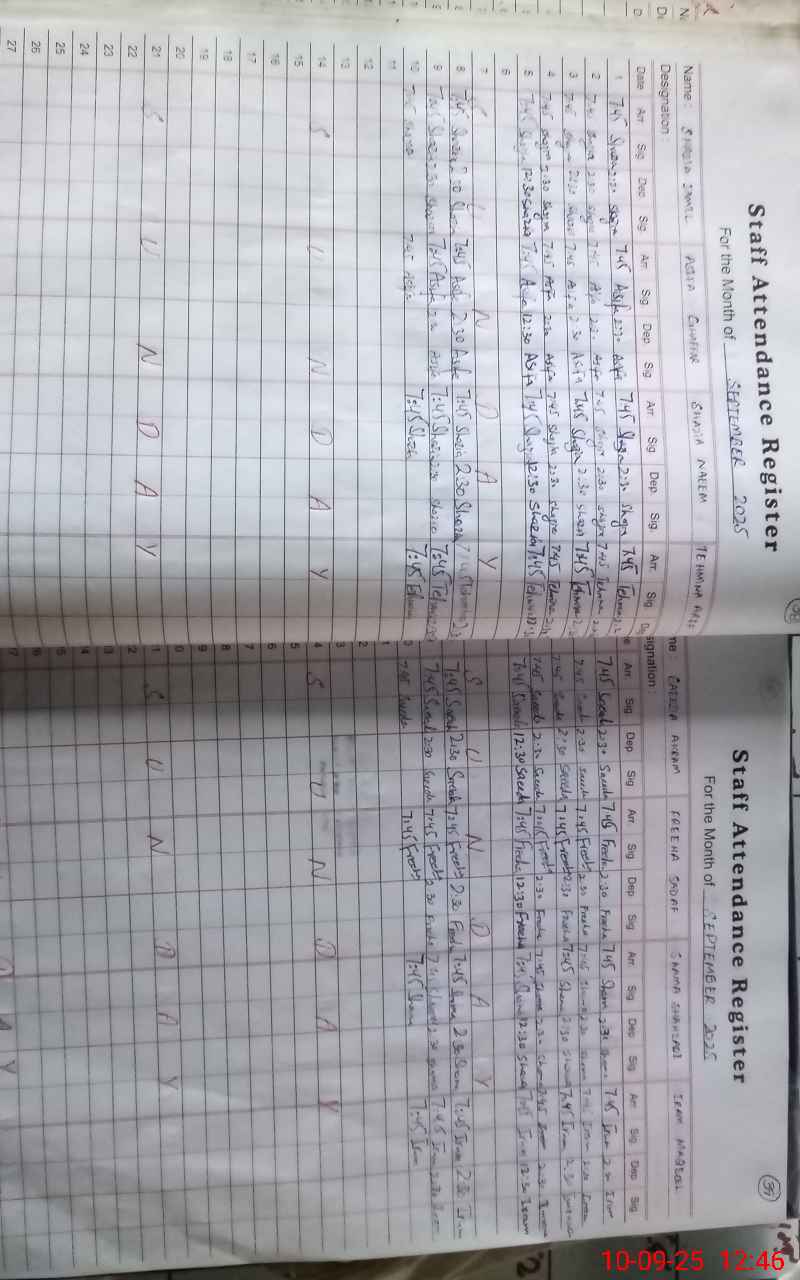 Staff Attendance Register
For the Month of SEPTEMBER 2025
Name: SHAZIA JAMIL ASIFA GHAFFAR SHAZIA NAEEM TEHMINA
Designation:
Date Arr Sig Dep Sig Arr Sig Dep Sig Arr Sig Dep Sig Arr Sig
1 7:45 Shazia 2:30 Shazia 7:45 Asifa 2:30 Asifa 7:45 Shazia 2:30 Shazia 7:45 Tehmina
2 7:45 Shazia 2:30 Shazia 7:45 Asifa 2:30 Asifa 7:45 Shazia 2:30 Shazia 7:45 Tehmina
3 7:45 Shazia 2:30 Shazia 7:45 Asifa 2:30 Asifa 7:45 Shazia 2:30 Shazia 7:45 Tehmina
4 7:45 Shazia 2:30 Shazia 7:45 Asifa 2:30 Asifa 7:45 Shazia 2:30 Shazia 7:45 Tehmina
5 7:45 Shazia 12:30 Shazia 7:45 Asifa 12:30 Asifa 7:45 Shazia 12:30 Shazia 7:45 Tehmina
6
7 S U N D A Y
8 7:45 Shazia 2:30 Shazia 7:45 Asifa 2:30 Asifa 7:45 Shazia 2:30 Shazia 7:45 Tehmina
9 7:45 Shazia 2:30 Shazia 7:45 Asifa 2:30 Asifa 7:45 Shazia 2:30 Shazia 7:45 Tehmina
10 7:45 Shazia 7:45 Asifa 7:45 Shazia 7:45 Tehmina
11
12
13
14 S U N D A Y
15
16
17
18
19
20
21 S U N D A Y
22
23
24
25
26
27
39
Staff Attendance Register
For the Month of SEPTEMBER 2025
me: SAEEDA AKRAM FREEHA SADAF SHAMA SHAHZADI IRAM MAQBOOL
signation:
Arr Sig Dep Sig Arr Sig Dep Sig Arr Sig Dep Sig Arr Sig Dep Sig
7:45 Saeeda 2:30 Saeeda 7:45 Freeha 2:30 Freeha 7:45 Shama 2:30 Shama 7:45 Iram 2:30 Iram
7:45 Saeeda 2:30 Saeeda 7:45 Freeha 2:30 Freeha 7:45 Shama 2:30 Shama 7:45 Iram 2:30 Iram
7:45 Saeeda 2:30 Saeeda 7:45 Freeha 2:30 Freeha 7:45 Shama 2:30 Shama 7:45 Iram 2:30 Iram
7:45 Saeeda 2:30 Saeeda 7:45 Freeha 2:30 Freeha 7:45 Shama 2:30 Shama 7:45 Iram 2:30 Iram
7:45 Saeeda 12:30 Saeeda 7:45 Freeha 12:30 Freeha 7:45 Shama 12:30 Shama 7:45 Iram 12:30 Iram
S U N D A Y
7:45 Saeeda 2:30 Saeeda 7:45 Freeha 2:30 Freeha 7:45 Shama 2:30 Shama 7:45 Iram 2:30 Iram
7:45 Saeeda 2:30 Saeeda 7:45 Freeha 2:30 Freeha 7:45 Shama 2:30 Shama 7:45 Iram 2:30 Iram
7:45 Saeeda 7:45 Freeha 7:45 Shama 7:45 Iram
1
2
3
4 S U N D A Y
5
6
7
8
9
0
1 S U N D A Y
2
13
14
15
16
17
10-09-25 12:46